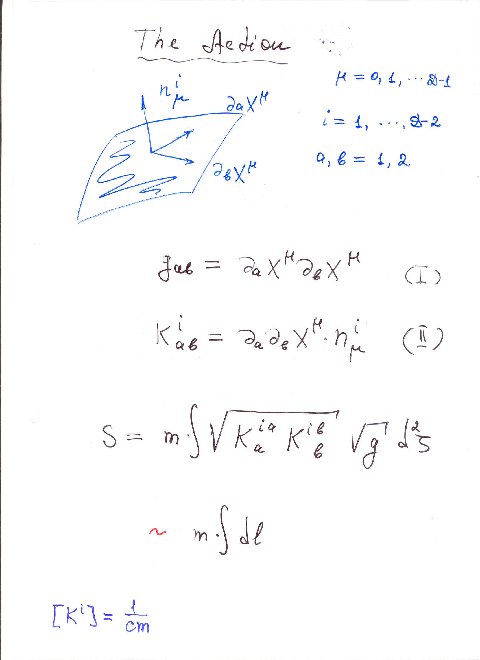 The Action
n^i_μ
∂_a X^μ
∂_b X^μ
μ = 0, 1, ... D-1
i = 1, ..., D-2
a, b = 1, 2
g_ab = ∂_a X^μ ∂_b X^μ (I)
K^i_ab = ∂_a ∂_b X^μ · n^i_μ (II)
S = m·∫ √(K^{ia}_a K^{ib}_b) √g d²ς
~ m·∫ dl
[K^i] = 1/cm